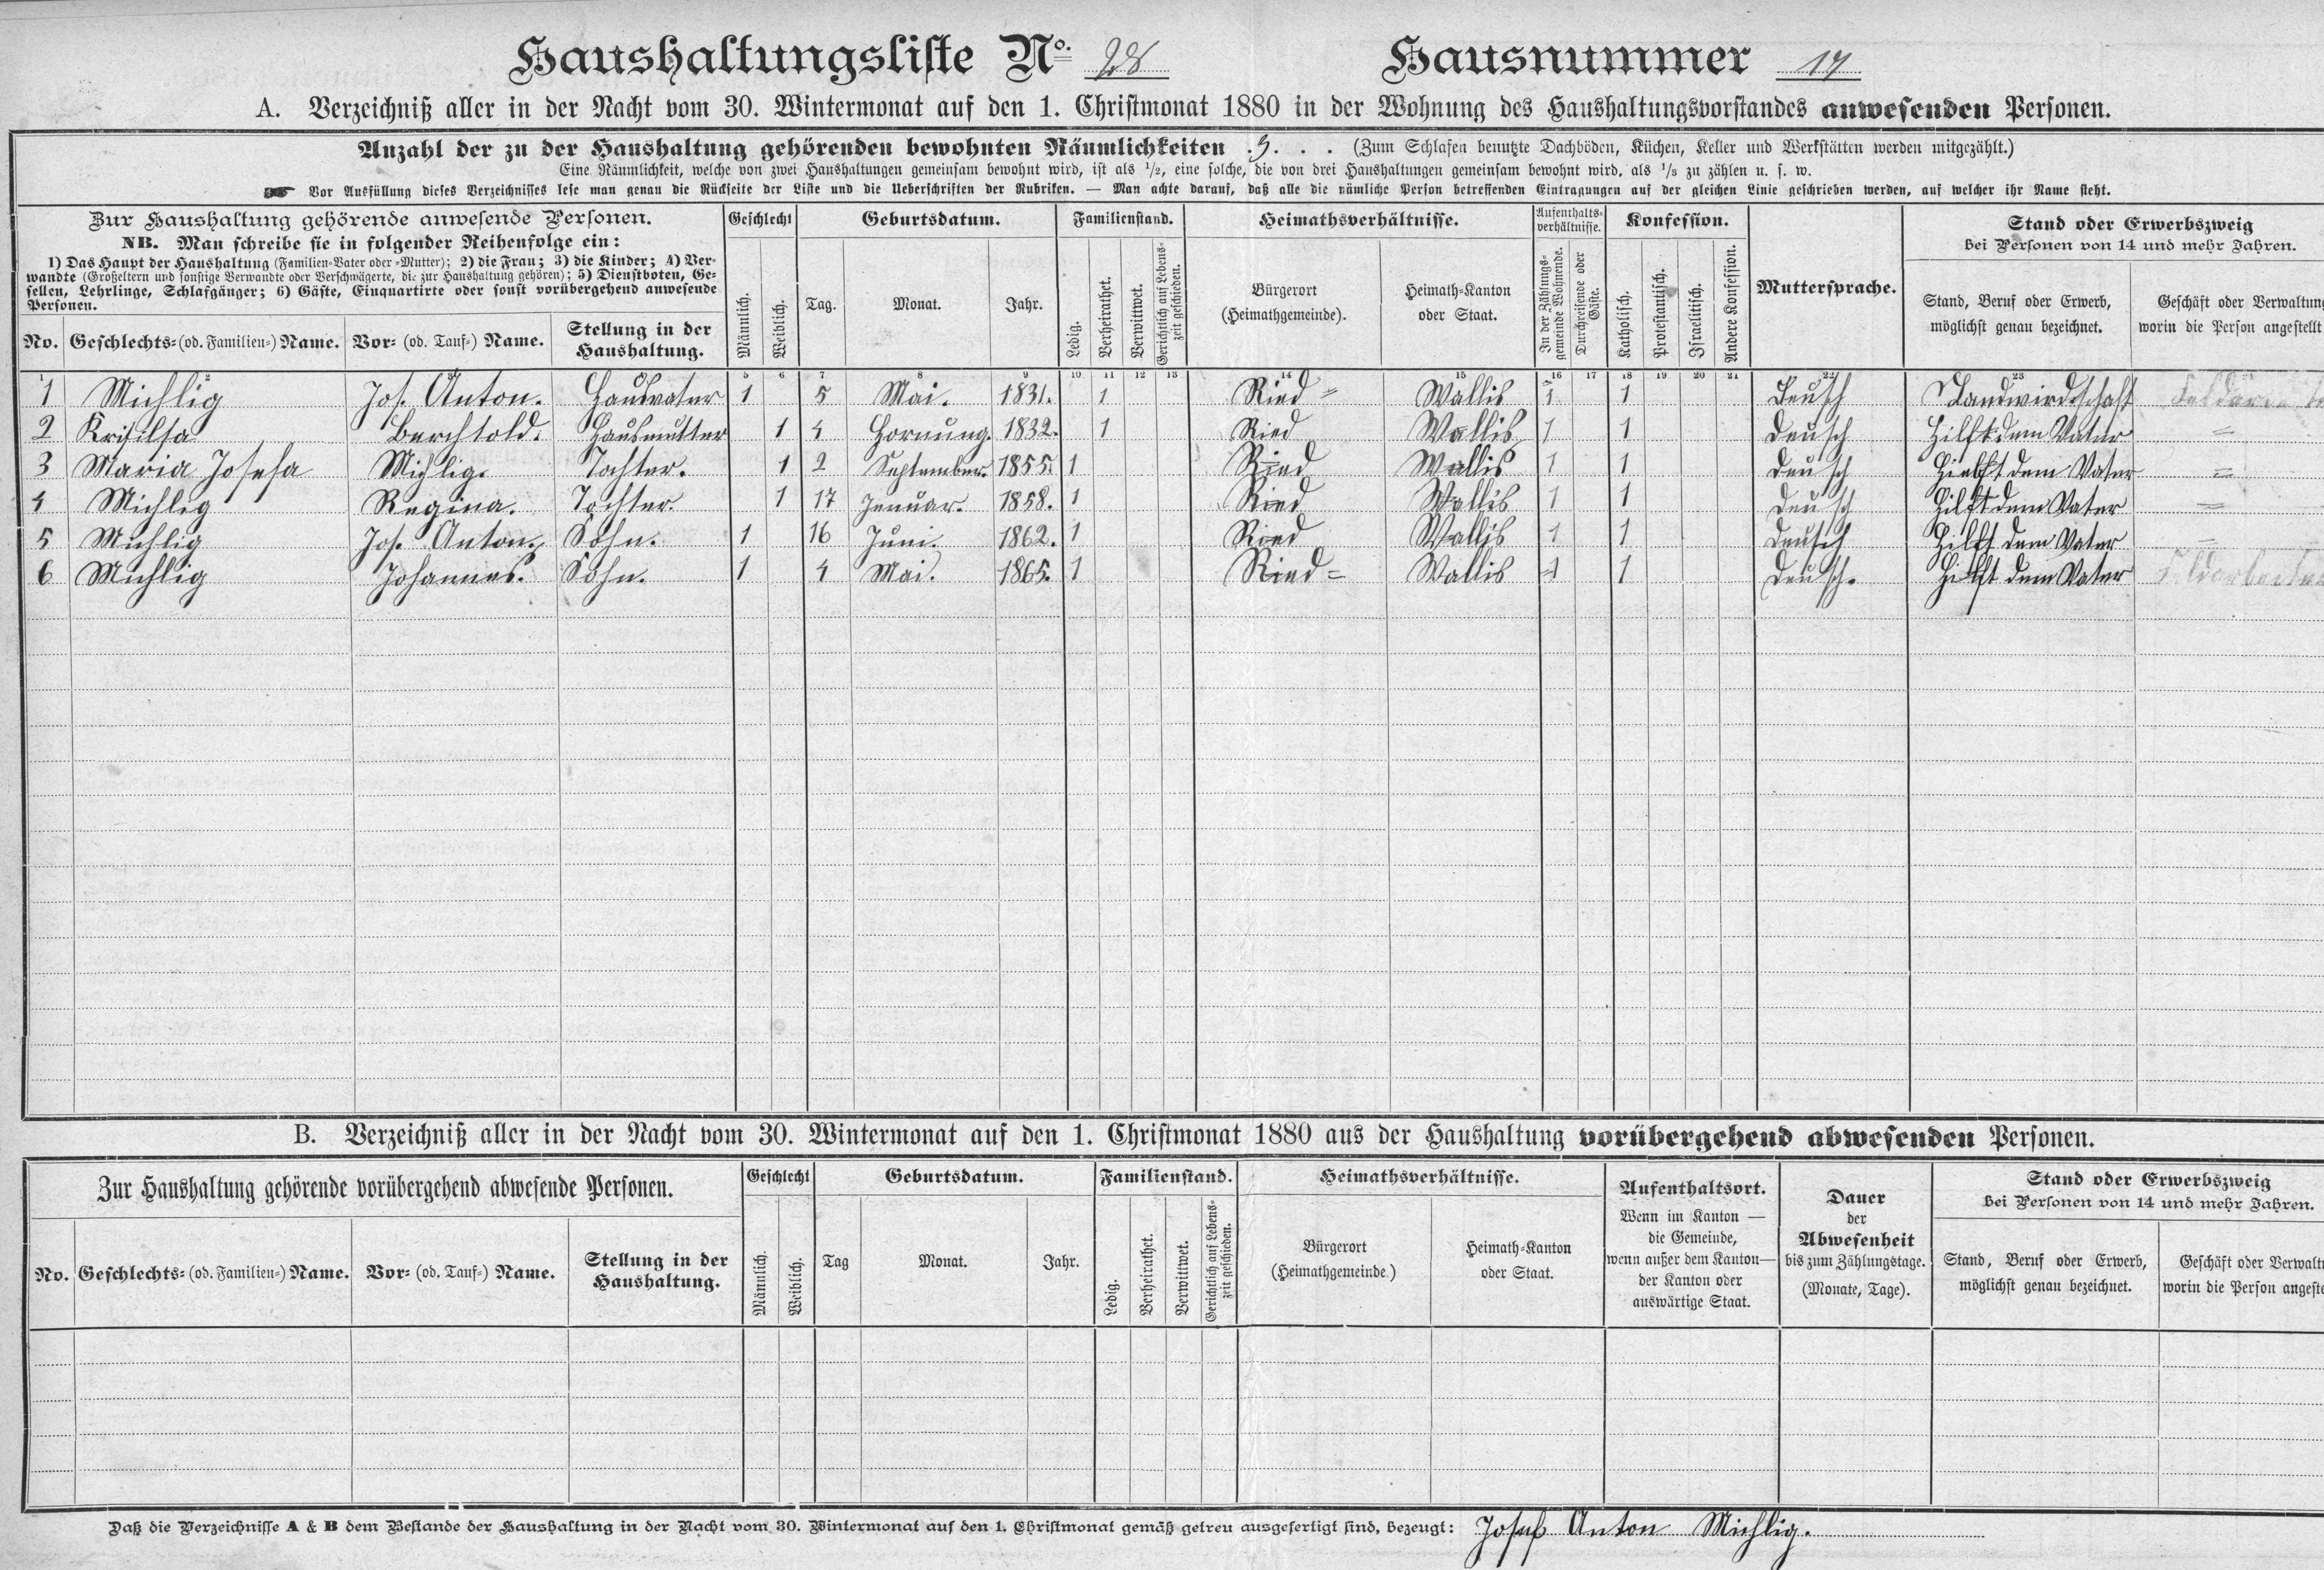 Haushaltungsliste No. 28 Hausnummer 17
A. Verzeichniß aller in der Nacht vom 30. Wintermonat auf den 1. Christmonat 1880 in der Wohnung des Haushaltungsvorstandes anwesenden Personen.
Anzahl der zu der Haushaltung gehörenden bewohnten Räumlichkeiten . . . (Zum Schlafen benutzte Dachböden, Küchen, Keller und Werkstätten werden mitgezählt.)
Eine Räumlichkeit, welche von zwei Haushaltungen gemeinsam bewohnt wird, ist als 1/2, eine solche, die von drei Haushaltungen gemeinsam bewohnt wird, als 1/3 zu zählen u. s. w.
☛ Vor Ausfüllung dieses Verzeichnisses lese man genau die Rückseite der Liste und die Ueberschriften der Rubriken. — Man achte darauf, daß alle die nämliche Person betreffenden Eintragungen auf der gleichen Linie geschrieben werden, auf welcher ihr Name steht.
Zur Haushaltung gehörende anwesende Personen.
NB. Man schreibe sie in folgender Reihenfolge ein:
1) Das Haupt der Haushaltung (Familien-Vater oder -Mutter); 2) die Frau; 3) die Kinder; 4) Ver-
wandte (Großeltern und sonstige Verwandte oder Verschwägerte, die zur Haushaltung gehören); 5) Dienstboten, Ge-
sellen, Lehrlinge, Schlafgänger; 6) Gäste, Einquartirte oder sonst vorübergehend anwesende
Personen.
No. Geschlechts- (od. Familien-) Name. Vor- (od. Tauf-) Name. Stellung in der
Haushaltung.
Geschlecht
Männlich. Weiblich.
Geburtsdatum.
Tag. Monat. Jahr.
Familienstand.
Ledig. Verheirathet. Verwittwet. Gerichtlich auf Lebens-
zeit geschieden.
Heimathsverhältnisse.
Bürgerort
(Heimathgemeinde).
Heimath-Kanton
oder Staat.
Aufenthalts-
verhältnisse.
In der Zählungs-
gemeinde Wohnende.
Durchreisende oder
Gäste.
Konfession.
Katholisch. Protestantisch. Israelitisch. Andere Konfession.
Muttersprache.
Stand oder Erwerbszweig
bei Personen von 14 und mehr Jahren.
Stand, Beruf oder Erwerb,
möglichst genau bezeichnet.
Geschäft oder Verwaltung
worin die Person angestellt
1 2 3 5 6 7 8 9 10 11 12 13 14 15 16 17 18 19 20 21 22 23
1 Michlig Jos. Anton. Hausvater 1 5 Mai. 1831. 1 Ried = Wallis 1 1 Deusch Landwirdschaft
2 Berchtold. Hausmutter 1 4 Hornung. 1832. 1 Ried Wallis 1 1 Deusch Hilft dem Vater =
3 Maria Josefa Michlig. Tochter. 1 2 September. 1855. 1 Ried Wallis 1 1 Deusch Hielft dem Vater =
4 Michlig Regina. Tochter. 1 17 Jenuar. 1858. 1 Ried Wallis 1 1 Deusch Hilft dem Vater =
5 Michlig Jos. Anton. Sohn. 1 16 Juni. 1862. 1 Ried Wallis 1 1 Deusch Hilft dem Vater =
6 Michlig Johannes. Sohn. 1 4 Mai. 1865. 1 Ried = Wallis 1 1 Deusch. Hilft dem Vater
B. Verzeichniß aller in der Nacht vom 30. Wintermonat auf den 1. Christmonat 1880 aus der Haushaltung vorübergehend abwesenden Personen.
Zur Haushaltung gehörende vorübergehend abwesende Personen.
No. Geschlechts- (od. Familien-) Name. Vor- (od. Tauf-) Name. Stellung in der
Haushaltung.
Geschlecht
Männlich. Weiblich.
Geburtsdatum.
Tag Monat. Jahr.
Familienstand.
Ledig. Verheirathet. Verwittwet. Gerichtlich auf Lebens-
zeit geschieden.
Heimathsverhältnisse.
Bürgerort
(Heimathgemeinde.)
Heimath-Kanton
oder Staat.
Aufenthaltsort.
Wenn im Kanton —
die Gemeinde,
wenn außer dem Kanton—
der Kanton oder
auswärtige Staat.
Dauer
der
Abwesenheit
bis zum Zählungstage.
(Monate, Tage).
Stand oder Erwerbszweig
bei Personen von 14 und mehr Jahren.
Stand, Beruf oder Erwerb,
möglichst genau bezeichnet.
Geschäft oder Verwaltu
worin die Person angeste
Daß die Verzeichnisse A & B dem Bestande der Haushaltung in der Nacht vom 30. Wintermonat auf den 1. Christmonat gemäß getreu ausgefertigt sind, bezeugt: Josef Anton Michlig.